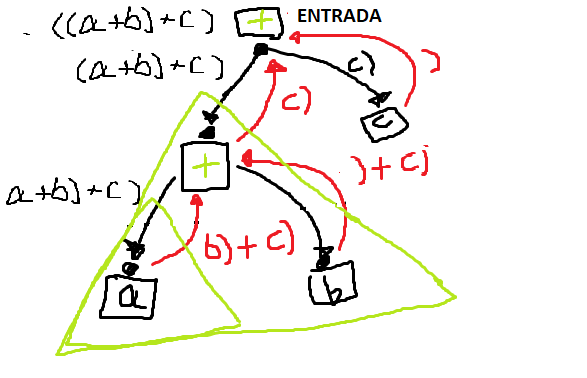 ((a+b)+c)
+ ENTRADA
(a+b)+c)
c)
)
c)
c
+
)+c)
a+b)+c)
b)+c)
a
b